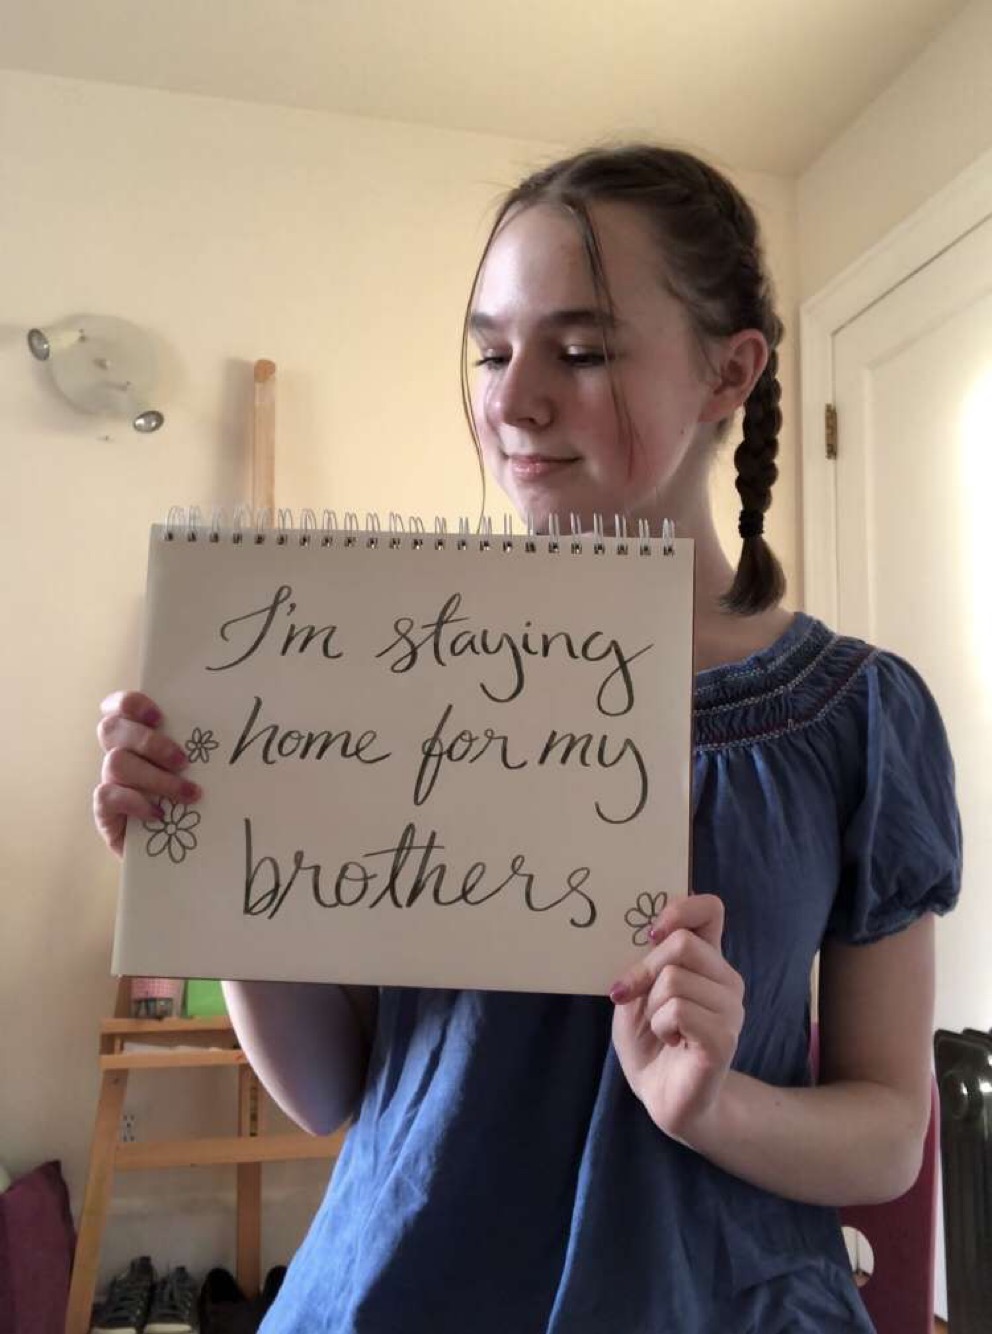 I'm staying
home for my
brothers